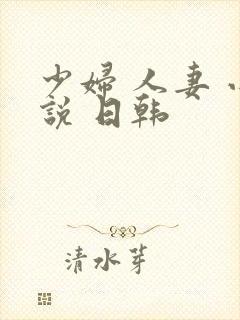 少婦 人妻 小
説 日韩
清水芽